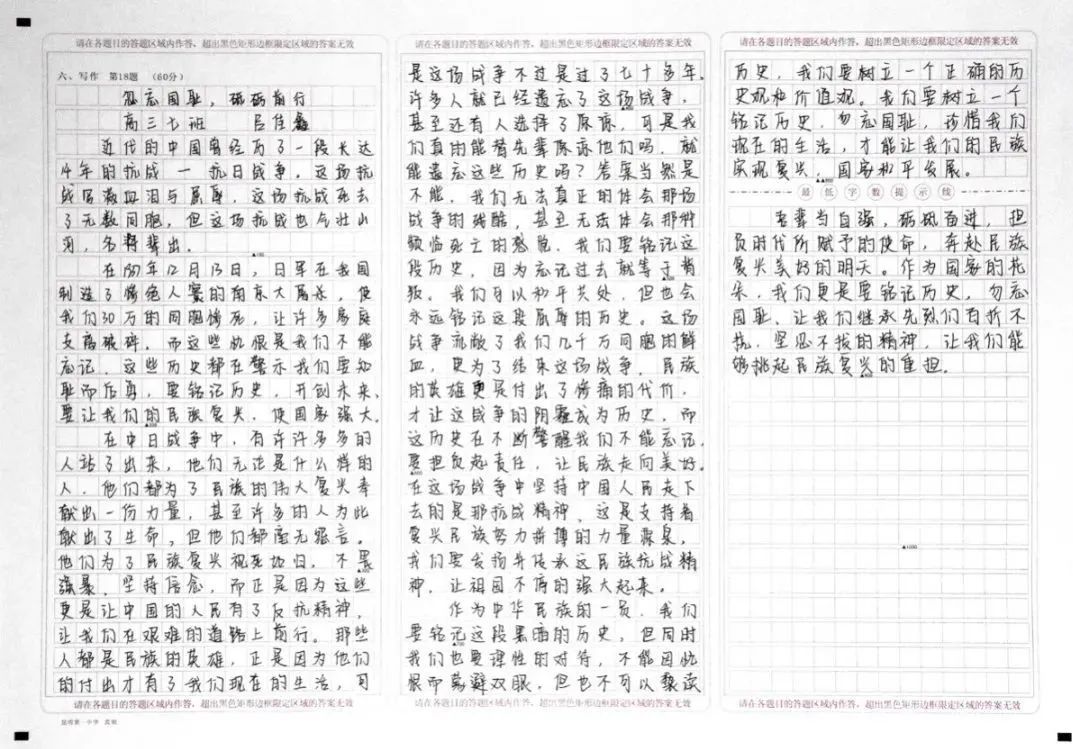 请在各题目的答题区域内作答，超出黑色矩形边框限定区域的答案无效
六、写作 第18题 （60分）
勿忘国耻，砥砺前行
高三七班 吕佳
近代的中国曾经历了一段长达
14年的抗战一抗日战争，这场抗
战写满血泪与屈辱，这场抗战死去
了无数同胞，但这场抗战也气壮山
河，名将辈出。
在1937年12月13日，日军在我国
制造了惨绝人寰的南京大屠杀，使
我们30万的同胞惨死，让许多家庭
支离破碎。而这些仇恨是我们不能
忘记，这些历史都在警示我们要知
耻而后勇，要铭记历史，开创未来，
要让我们的民族复兴，使国家强大。
在中日战争中，有许许多多的
人站了出来，他们无论是什么样的
人，他们都为了民族的伟大复兴奉
献出一份力量，甚至许多的人为此
献出了生命，但他们都毫无怨言。
他们为了民族复兴视死如归，不畏
强暴，坚持信念，而正是因为这些
更是让中国的人民有了反抗精神，
让我们在艰难的道路上前行。那些
人都是民族的英雄，正是因为他们
的付出才有了我们现在的生活，可
请在各题目的答题区域内作答，超出黑色矩形边框限定区域的答案无效
昆明第一中学 高
请在各题目的答题区域内作答，超出黑色矩形边框限定区域的答案无效
是这场战争不过是过了七十多年，
许多人就已经遗忘了这场战争，
甚至还有人选择了原谅，可是我
们真的能替先辈原谅他们吗，就
能遗忘这些历史吗？答案当然是
不能，我们无法真正的体会那场
战争的残酷，甚至无法体会那种
频临死亡的感觉，我们要铭记这
段历史，因为忘记过去就等于背
叛。我们可以和平共处，但也会
永远铭记这段屈辱的历史。这场
战争流散了我们几千万同胞的鲜
血，更为了结束这场战争，民族
的英雄更是付出了惨痛的代价，
才让这战争的阴霾成为历史，而
这历史在不断警醒我们不能忘记，
要担负起责任，让民族走向美好。
在这场战争中坚持中国人民走下
去的是那抗战精神，这是支持着
复兴民族努力拼搏的力量源泉，
我们要发扬并传承这民族抗战精
神，让祖国不停的强大起来。
作为中华民族的一员，我们
要铭记这段黑暗的历史，但同时
我们也要理性的对待，不能因仇
恨而蒙避双眼，但也不可以亵读
请在各题目的答题区域内作答，超出黑色矩形边框限定区域的答案无效
请在各题目的答题区域内作答，超出黑色矩形边框限定区域的答案无效
历史，我们要树立一个正确的历
史观和价值观。我们要树立一个
铭记历史，勿忘国耻，珍惜我们
现在的生活，才能让我们的民族
实现复兴，国家和平发展。
最低字数提示线
吾辈当自强，砥砺奋进，担
负时代所赋予的使命，奔赴民族
复兴美好的明天。作为国家的花
朵，我们更是要铭记历史，勿忘
国耻，让我们继承先烈们百折不
挠，坚忍不拔的精神，让我们能
够挑起民族复兴的重担。
▲1000
请在各题目的答题区域内作答，超出黑色矩形边框限定区域的答案无效